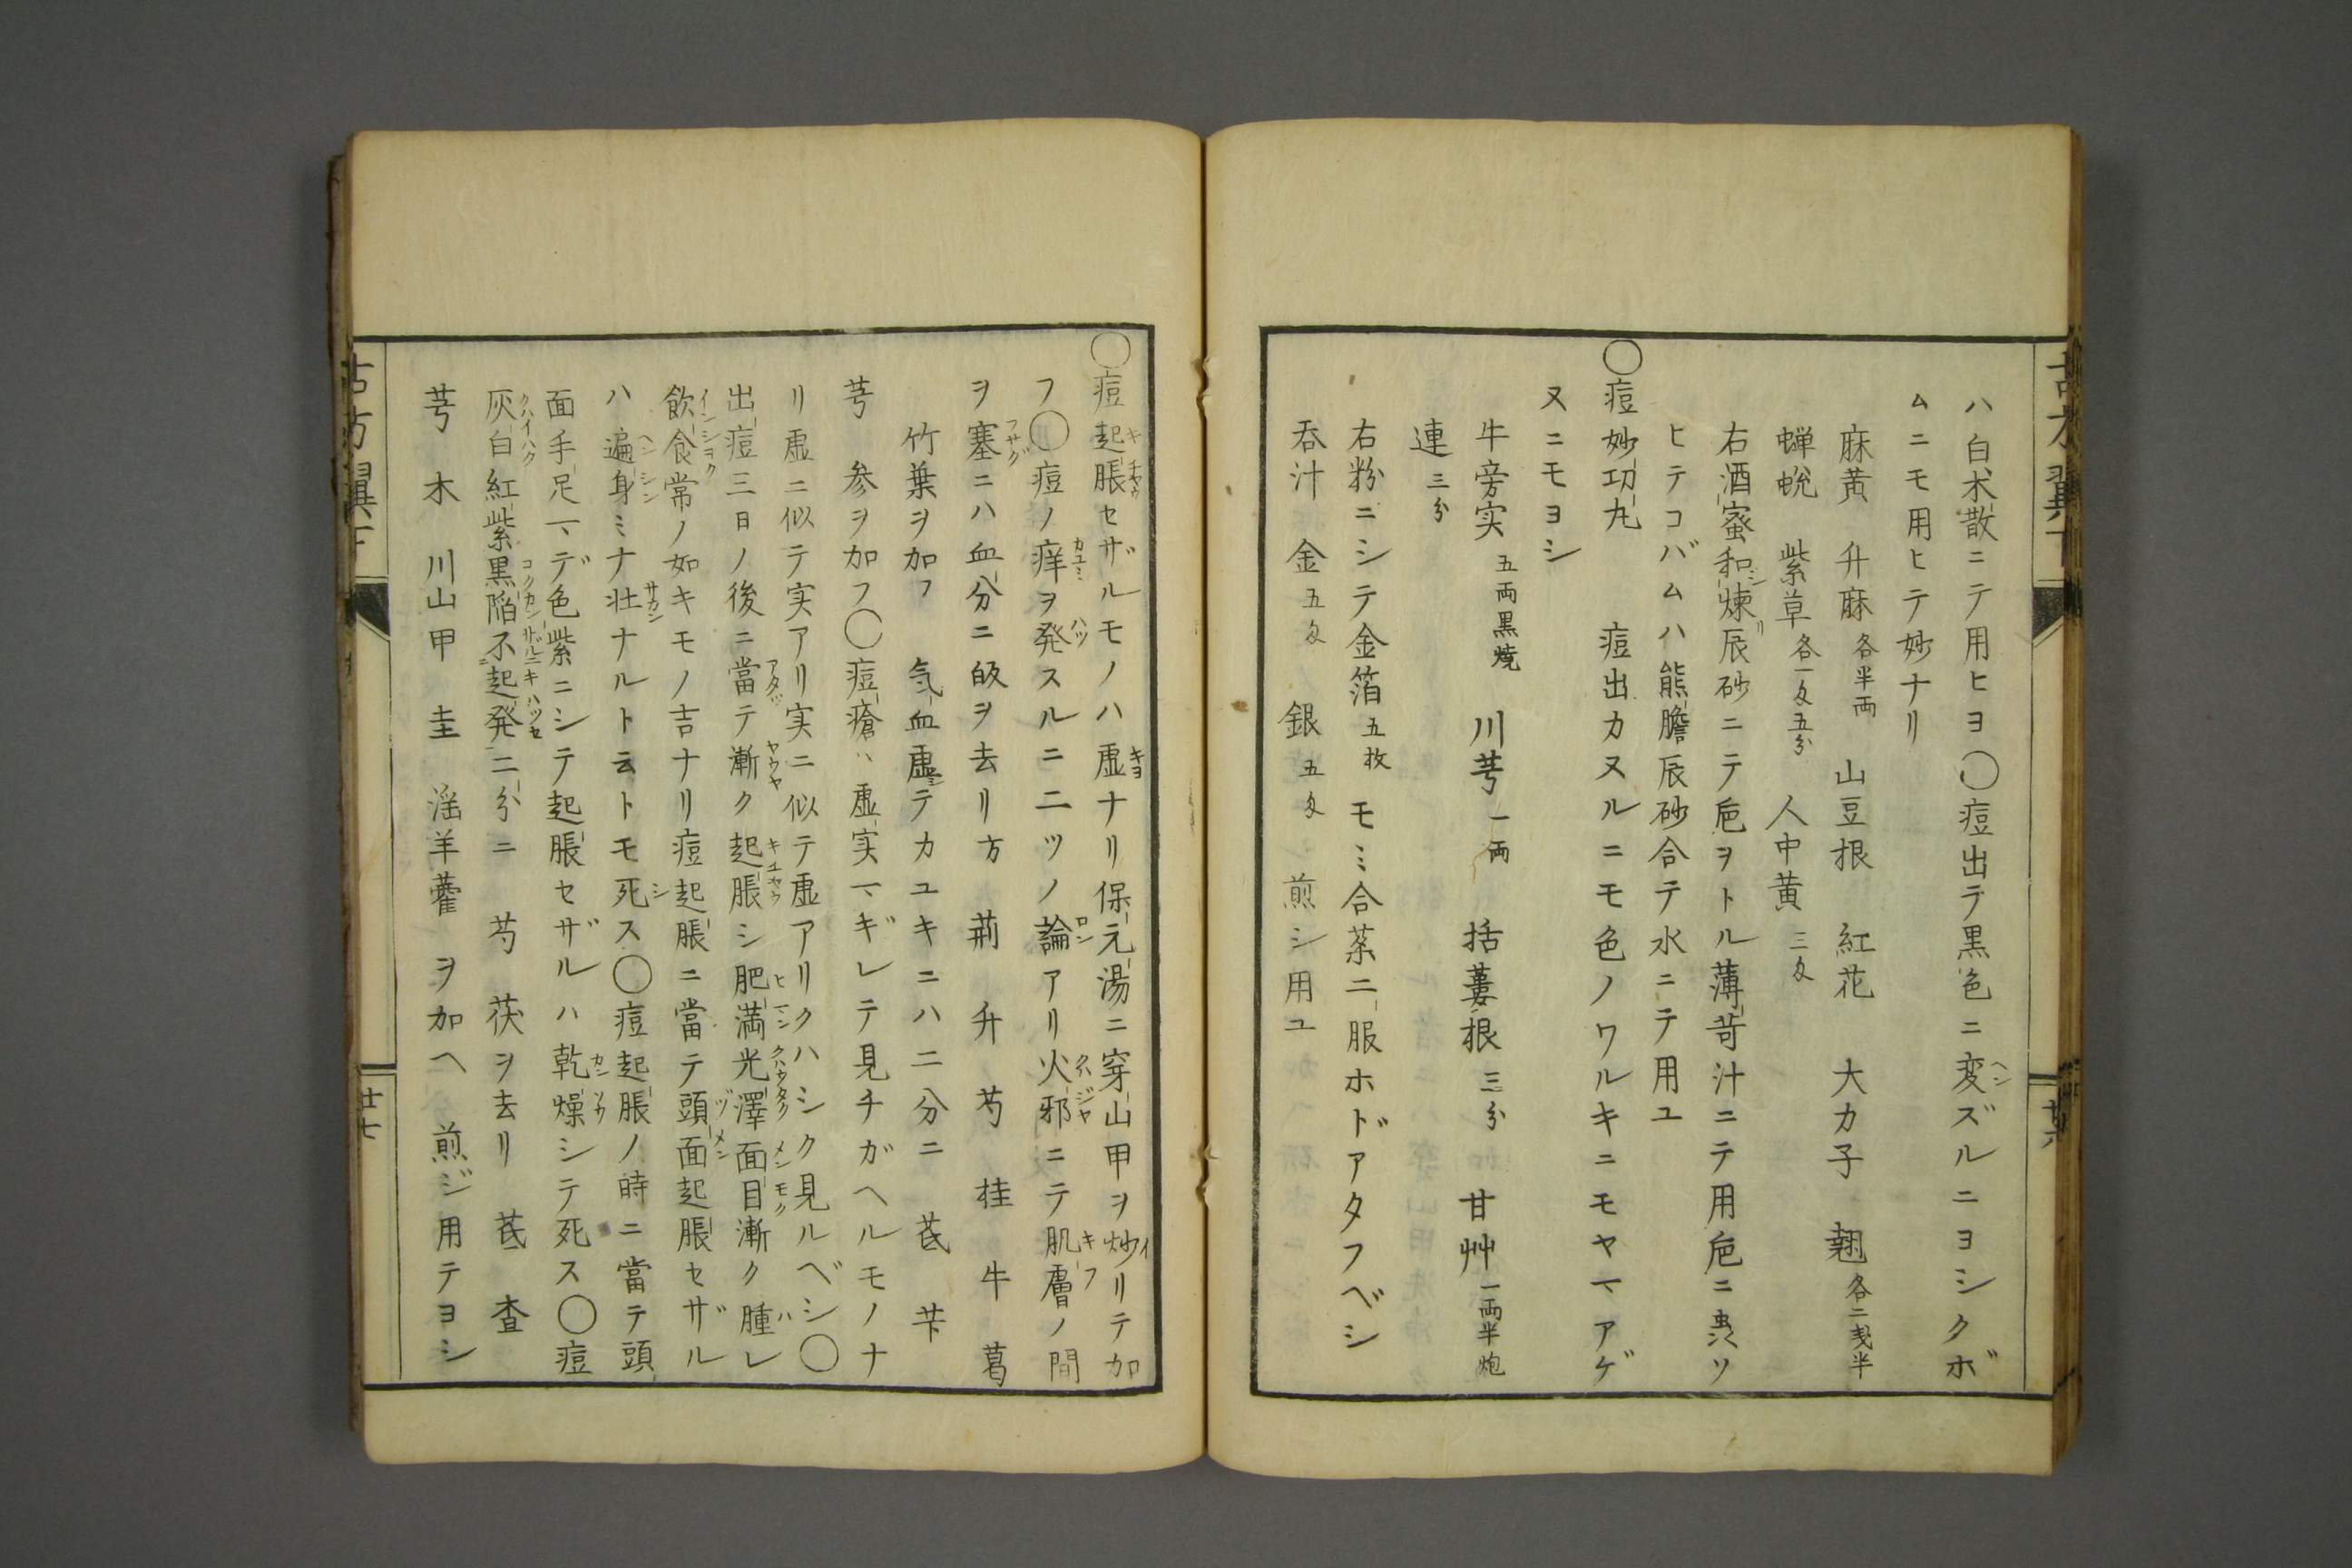 ハ白朮散ニテ用ヒヨ○痘出テ黒色ニ変ズルニヨシクボ
ムニモ用ヒテ妙ナリ
麻黄 升麻各半両 山豆根 紅花 大力子 翹各二戔半
蝉蛻 紫草各一匁五分 人中黄三匁
右酒蜜和煉辰砂ニテ㔾ヲトル薄苛汁ニテ用
ヒテコバムハ熊膽辰砂合テ水ニテ用ユ
○痘妙功丸 痘出カヌルニモ色ノワルキニモヤマアゲ
又ニモヨシ
牛旁実五両黒焼 川芎一両 括蔞根三分 甘艸一両半炮
連三分
右粉ニシテ金箔五枚モミ合茶二服ホドアタフベシ
呑汁 金五匁 銀五匁 煎シ用ユ
○痘起脹セザルモノハ虚ナリ保元湯ニ穿山甲ヲ炒リテ加
フ○痘ノ痒ヲ発スルニ二ツノ論アリ火邪ニテ肌膚ノ間
ヲ塞ニハ血分ニ皈ヲ去リ方 荊 升 芍 桂 牛 葛
竹葉ヲ加フ 気血虚テカユキニハ二分ニ 芪 苄
芎 参ヲ加フ○痘瘡ハ虚実マギレテ見チガヘルモノナ
リ虚ニ似テ実アリ実ニ似テ虚アリクハシク見ルベシ○
出痘三日ノ後ニ當テ漸ク起脹シ肥満光澤面目漸ク腫レ
飲食常ノ如キモノ吉ナリ痘起脹ニ當テ頭面起脹セザル
ハ遍身ミナ壮ナルト云トモ死ス○痘起脹ノ時ニ當テ頭
面手足マデ色紫ニシテ起脹セザルハ乾燥シテ死ス○痘
灰白紅紫黒陥不起発二分ニ 芍 茯ヲ去リ 芪 査
芎 木 川山甲 圭 淫羊藿ヲ加ヘ 煎ジ用テヨシ
古方翼下
廿七